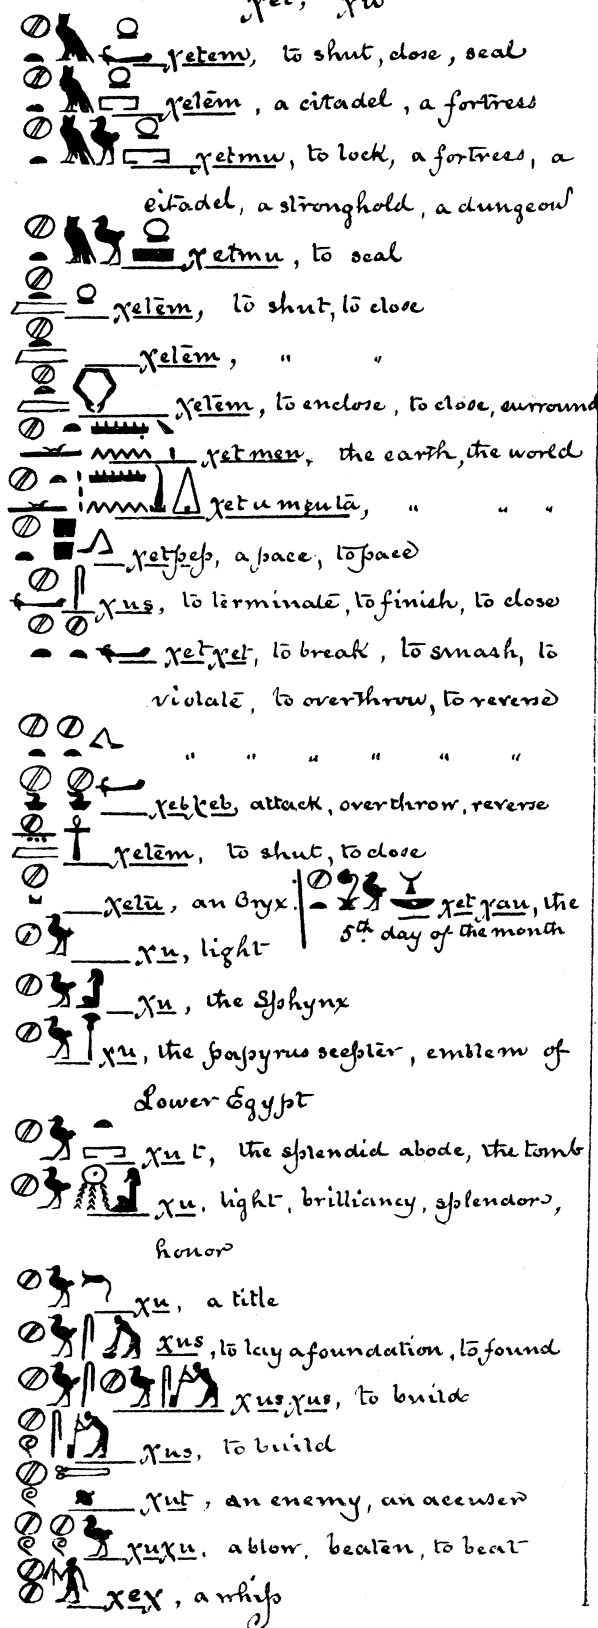 χet, χu
χetem, to shut, close, seal
χetēm, a citadel, a fortress
χetmu, to lock, a fortress, a
citadel, a stronghold, a dungeon
χetmu, to seal
χetēm, to shut, to close
χetēm, " "
χetēm, to enclose, to close, surround
χetmen, the earth, the world
χetu mentā, " " "
χetpep, a pace, to pace
χus, to terminate, to finish, to close
χetχet, to break, to smash, to
violate, to overthrow, to reverse
" " " " " "
χebχeb, attack, overthrow, reverse
χetēm, to shut, to close
χetū, an Oryx.
χetχau, the
5th day of the month
χu, light
χu, the Sphynx
χu, the papyrus scepter, emblem of
Lower Egypt
χut, the splendid abode, the tomb
χu, light, brilliancy, splendor,
honor
χu, a title
χus, to lay a foundation, to found
χusχus, to build
χus, to build
χut, an enemy, an accuser
χuχu, a blow, beaten, to beat
χeχ, a whip